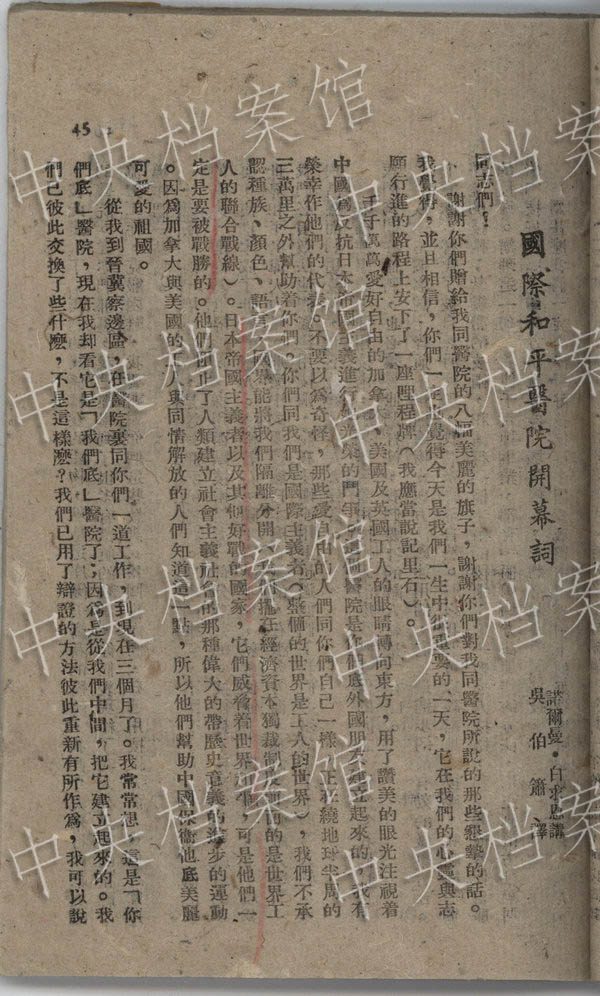 國際和平醫院開幕詞
諾爾曼·白求恩講
吳伯簫譯
同志們！
謝謝你們贈給我同醫院的八幅美麗的旗子，謝謝你們對我同醫院所說的那些懇摯的話。
我覺得，並且相信，你們一定也覺得今天是我們一生中很重要的一天，它在我們的心靈與志
願行進的路程上安下了一座里程碑（我應當說記里石）。
千千萬萬愛好自由的加拿大、美國及英國工人的眼睛轉向東方，用了讚美的眼光注視着
中國為反抗日本帝國主義進行的光榮的鬥爭。這個醫院是你們底外國朋友建立起來的。我有
榮幸作他們的代表。不要以為奇怪，那些愛自由的人們同你們自己一樣，正在繞地球半周的
三萬里之外幫助着你們。你們同我們是國際主義者（整個的世界是工人的世界），我們不承
認種族、顏色、語言、國界能將我們隔離分開
人的聯合戰線）。日本帝國主義者以及其他好戰的國家，它們威脅着世界和平，可是他們一
定是要被戰勝的。他們阻止了人類建立社會主義社會的那種偉大的帶歷史意義的進步的運動
。因為加拿大與美國的工人與同情解放的人們知道這一點，所以他們幫助中國保衛他底美麗
可愛的祖國。
從我到晉察冀邊區，在醫院裏同你們一道工作，到現在三個月了。我常常想，這是「你
們底」醫院，現在我却看它是「我們底」醫院了；因為是從我們中間，把它建立起來的。我
們已彼此交換了些什麼，不是這樣麼？我們已用了辯證的方法彼此重新有所作為，我可以說
45
中央档案馆
中央档案馆
中央档案馆
中央档案馆
中央档案馆
中央档案馆
中央档案馆
中央档案馆